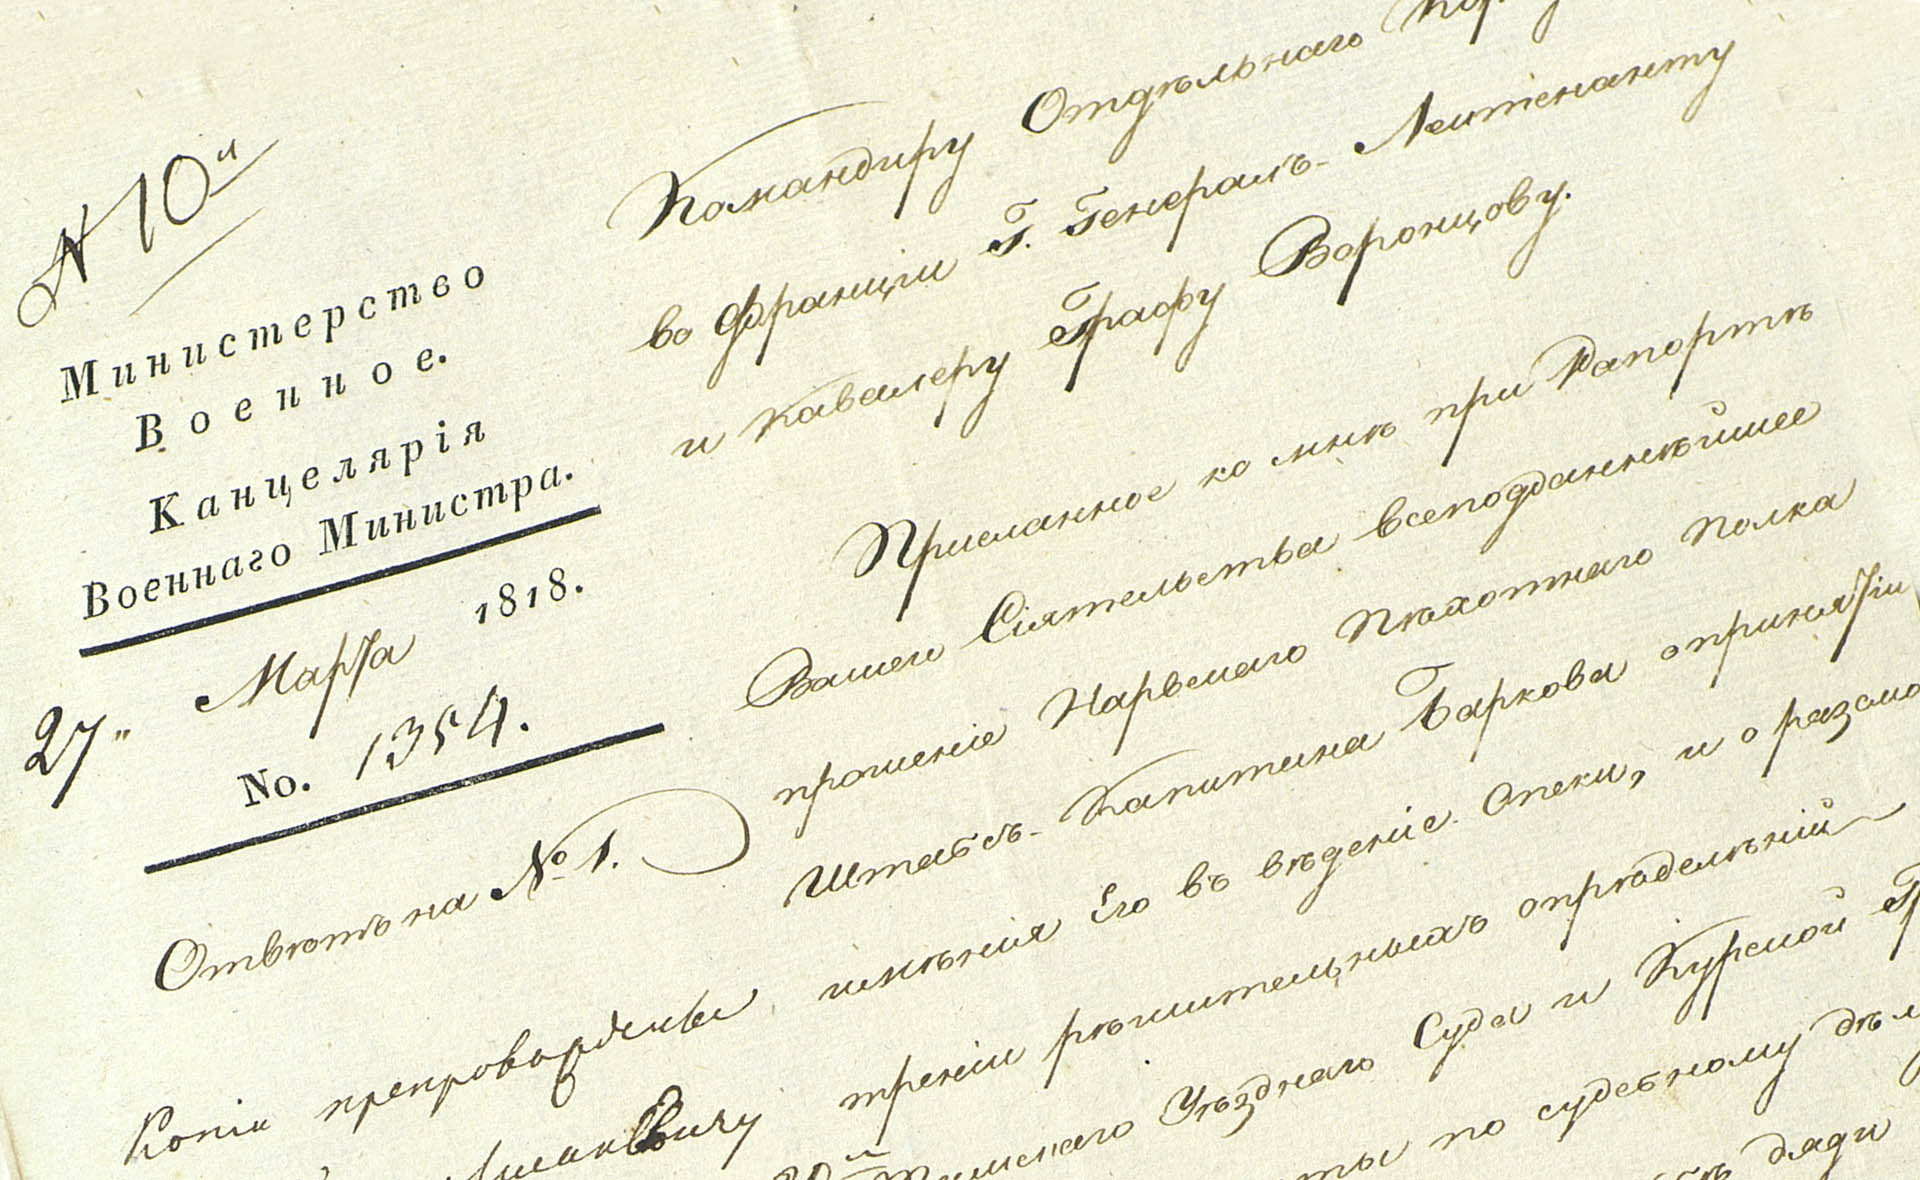 N 10й
Министерство
Военное.
Канцелярія
Военнаго Министра.
27„ Марта 1818.
No. 1354.
Отвѣтъ на № 1.
Копіи препровождены
Командиру Отдѣльнаго
во Франціи Г. Генералъ-Лейтенанту
и Кавалеру Графу Воронцову.
Присланное ко мнѣ при Рапортѣ
Вашего Сіятельства всеподданнѣйшее
прошеніе Нарвскаго Пѣхотнаго Полка
Штабсъ-Капитана Баркова о принятіи
имѣнія Его въ вѣденіе Опеки, и о разсмо
треніи рѣшительныхъ опрѣделѣній
Уѣзднаго Суда и Курской
по судебному дѣл
дяди